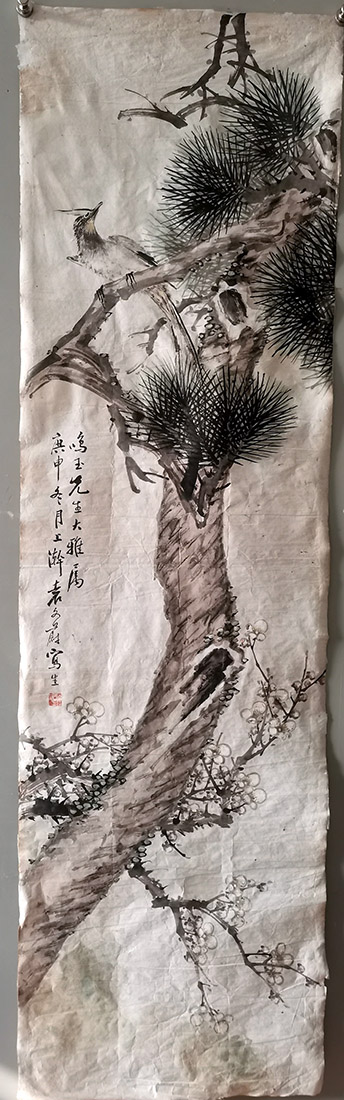 鳴玉先生大雅之属
庚申冬月上澣袁文蔚寫生